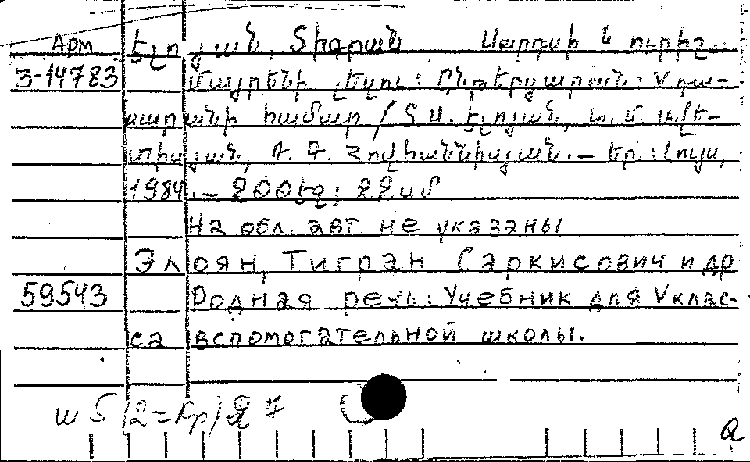 Арм Էլոյան, Տիգրան Սարգսի և ուրիշ.
3-14783 Մայրենի լեզու: Ընթերցարան: V դա-
սարանի համար / Տ. Ս. Էլոյան,
Հովհաննիսյան. — Եր.: Լույս,
1984. — 200 էջ; 22 սմ
На обл. авт не указаны
Элоян, Тигран Саркисович и др
59543 Родная речь: Учебник для V клас-
са вспомогательной школы.